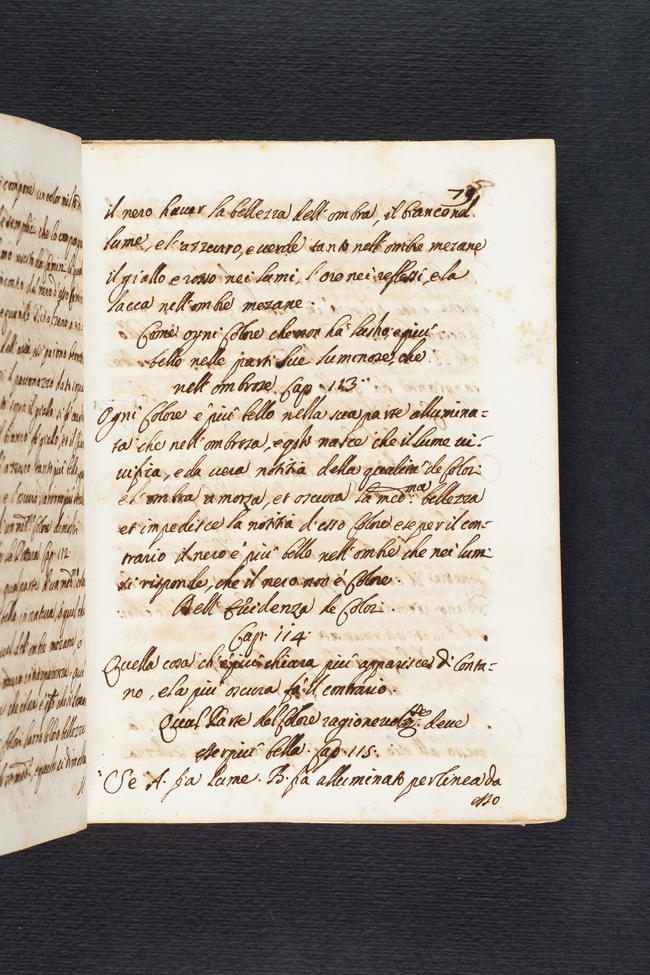 il nero hauer la bellezza dell'ombra, il bianco nel
lume, e l'azzurro, e uerde tanto nell'ombre mezane
il giallo e rosso nei lumi, l'oro nei reflessi, e la
lacca nell'ombre mezane.
Come ogni Colore che non ha lustro, e piu
bello nelle parti sue luminose, che
nell'ombrose. Cap. 113.
Ogni Colore e piu bello nella sua parte allumina-
ta che nell'ombrosa, e quh nasce che il lume ui-
uifica, e da uera notitia della qualita de Color:
e l'ombra amorza, et oscura la med.ma bellezza
et impedisce la notitia d'esso Colore e se per il con-
trario il nero e piu bello nell'ombre che nei lumi
si risponde, che il nero non e Colore.
Dell'Euidenza de Color:
Cap. 114.
Quella cosa ch'e piu chiara piu apparisce di lonta-
no, e la piu oscura fa il contrario.
Qual Parte del Colore ragioneuolm.te deue
esser piu bella. Cap. 115.
Se A. sia lume. B. sia alluminato per linea da
esso